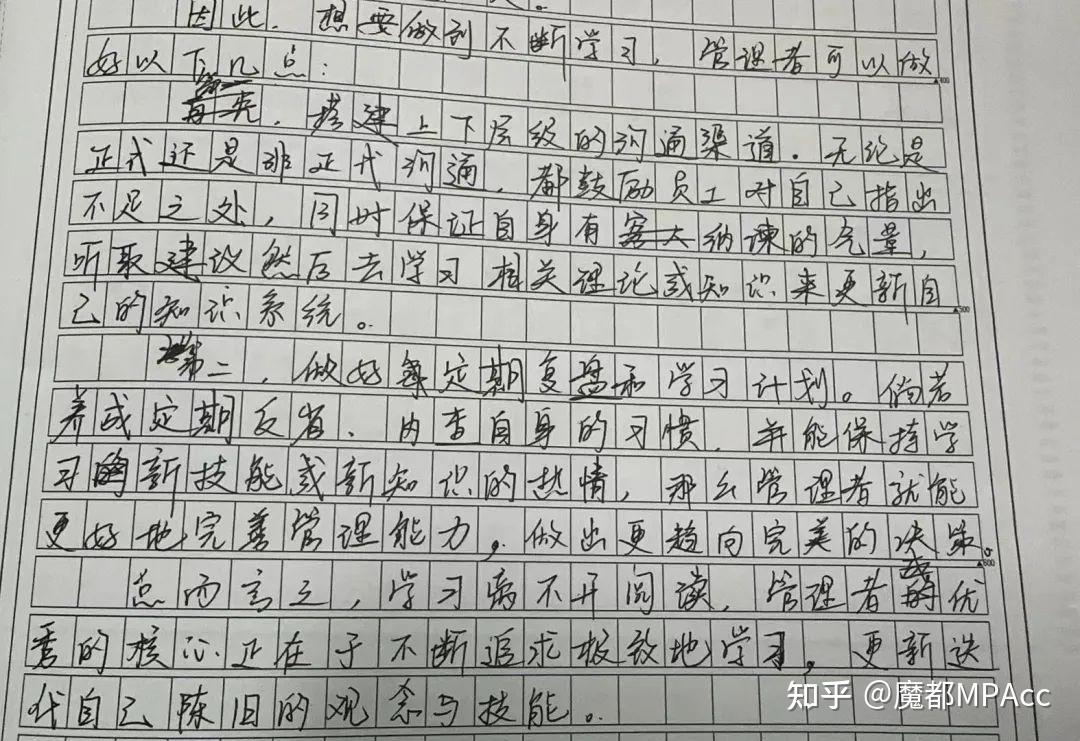 因此，想要做到不断学习，管理者可以做
好以下几点：
第一，搭建上下层级的沟通渠道．无论是
正式还是非正式沟通，都鼓励员工对自己指出
不足之处，同时保证自身有纳谏的气量，
听取建议然后去学习相关理论或知识来更新自
己的知识系统。
第二，做好定期复盘和学习计划。倘若
养成定期反省、内查自身的习惯，并能保持学
习新技能或新知识的热情，那么管理者就能
更好地完善管理能力，做出更趋向完美的决策。
总而言之，学习离不开阅读，管理者成优
秀的核心正在于不断追求极致地学习，更新迭
代自己陈旧的观念与技能。
知乎 @魔都MPAcc